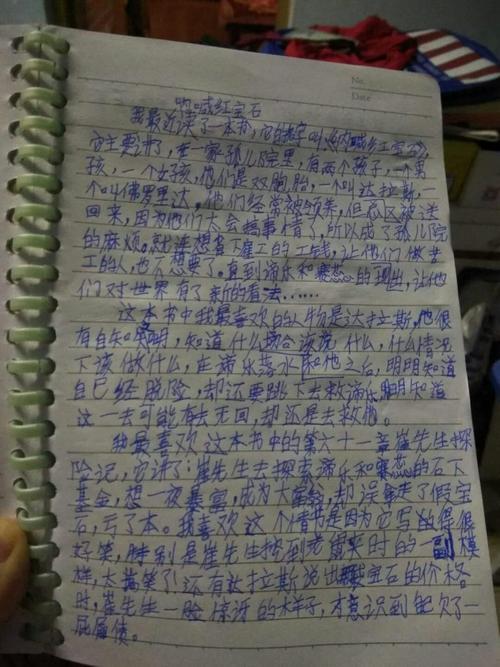 No.
Date
呐喊红宝石
我最近读了一本书,它的名字叫《呐喊红宝石》,
它主要讲了,在一家孤儿院里,有两个孩子,一个男
孩,一个女孩,他们是双胞胎,一个叫达拉斯,一
个叫佛罗里达。他们经常被领养,但总又被送
回来,因为他们太会搞事情了,所以成了孤儿院
的麻烦。就连想省下雇工的工钱,让他们做苦
工的人,也不想要了。直到蒂乐和塞蕊的出现,让他
们对世界有了新的看法……
这本书中我最喜欢的人物是达拉斯,他很
有自知之明,知道什么场合该说什么,什么情况
下该做什么,在蒂乐落水和他之后,明明知道
自己经脱险,却还要跳下去救蒂乐,明知道
这一去可能有去无回,却还是去救他。
我最喜欢这本书中的第六十一章崔先生探
险记,它讲了:崔先生去探索蒂乐和塞蕊的石下
基金,想一夜暴富,成为大富翁,却误拿走了假宝
石,亏了本。我喜欢这个情节是因为它写的得很
好笑,特别是崔先生挖到宝贝时的一副模
样,太搞笑了!还有达拉斯说出宝石的价格
时,崔先生一脸惊讶的样子,才意识到自己欠了一
屁屁债。